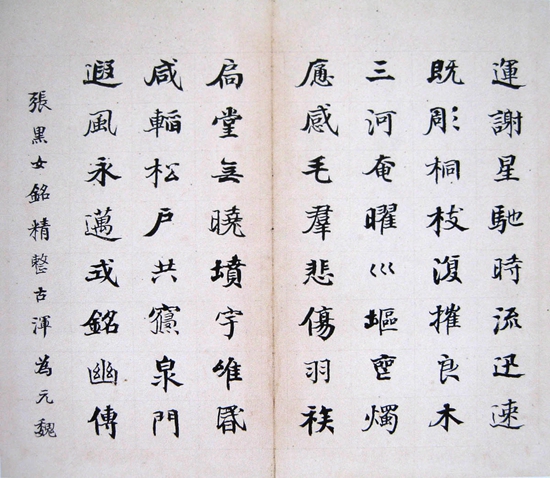 運謝星馳時流迅速
既彫桐枝復摧良木
三河奄曜巛塸堙燭
應感毛羣悲傷羽族
扃堂無曉墳宇唯昏
咸韜松戶共寢泉門
遐風永邁式銘幽傳
張黑女銘精整古渾為元魏